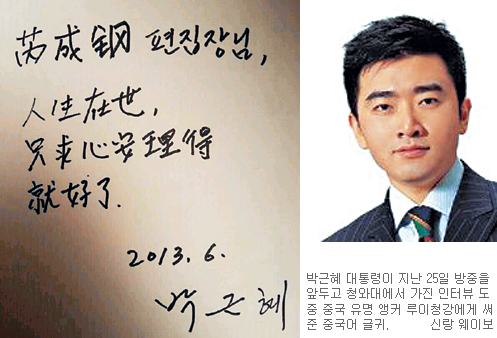 芮成钢 편집장님,
人生在世,
只求心安理得
就好了.
2013. 6.
박근혜
박근혜 대통령이 지난 25일 방중을
앞두고 청와대에서 가진 인터뷰 도
중 중국 유명 앵커 루이청강에게 써
준 중국어 글귀. 신랑 웨이보